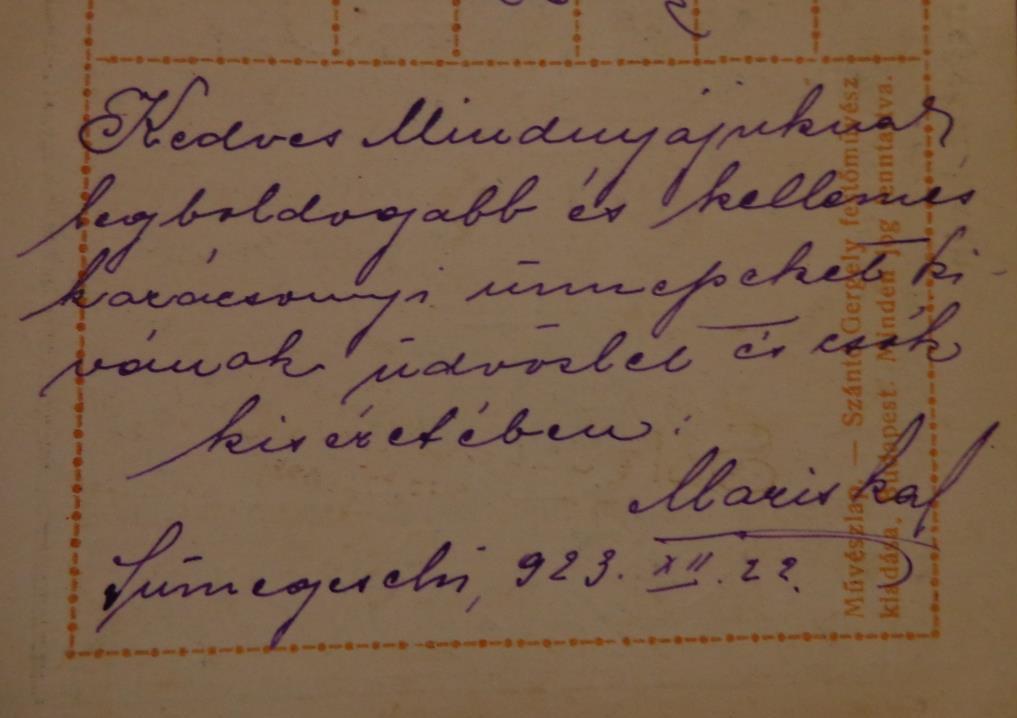 Kedves Mindnyájuknak
legboldogabb és kellemes
karácsonyi ünnepeket ki-
vánok üdvözlet és csók
kiséretében:
Mariska
Sümegcsehi, 923. XII. 22.
Művészlap. — Szántó Gergely festőművész
kiadása, Budapest. Minden jog fenntartva.